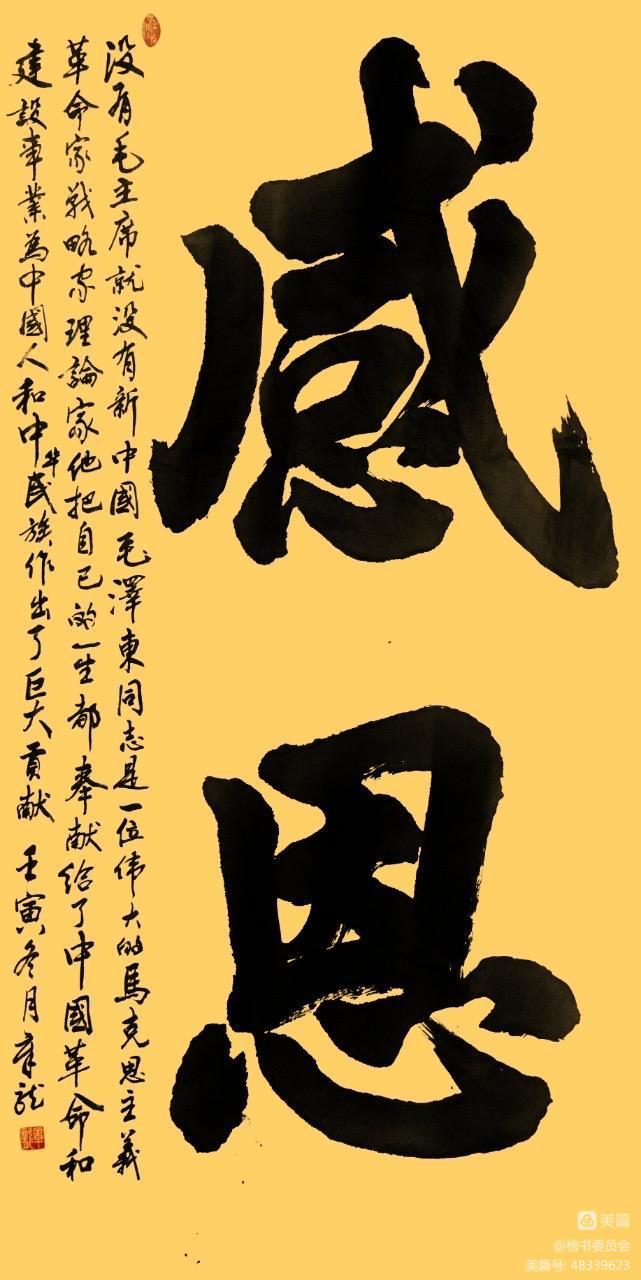 感恩
没有毛主席就没有新中國毛澤東同志是一位伟大的馬克思主義
革命家战略家理論家他把自己的一生都奉献给了中國革命和
建設事業為中國人和中华民族作出了巨大貢献 壬寅冬月章龙
美篇
@榜书委员会
美篇号: 48339623